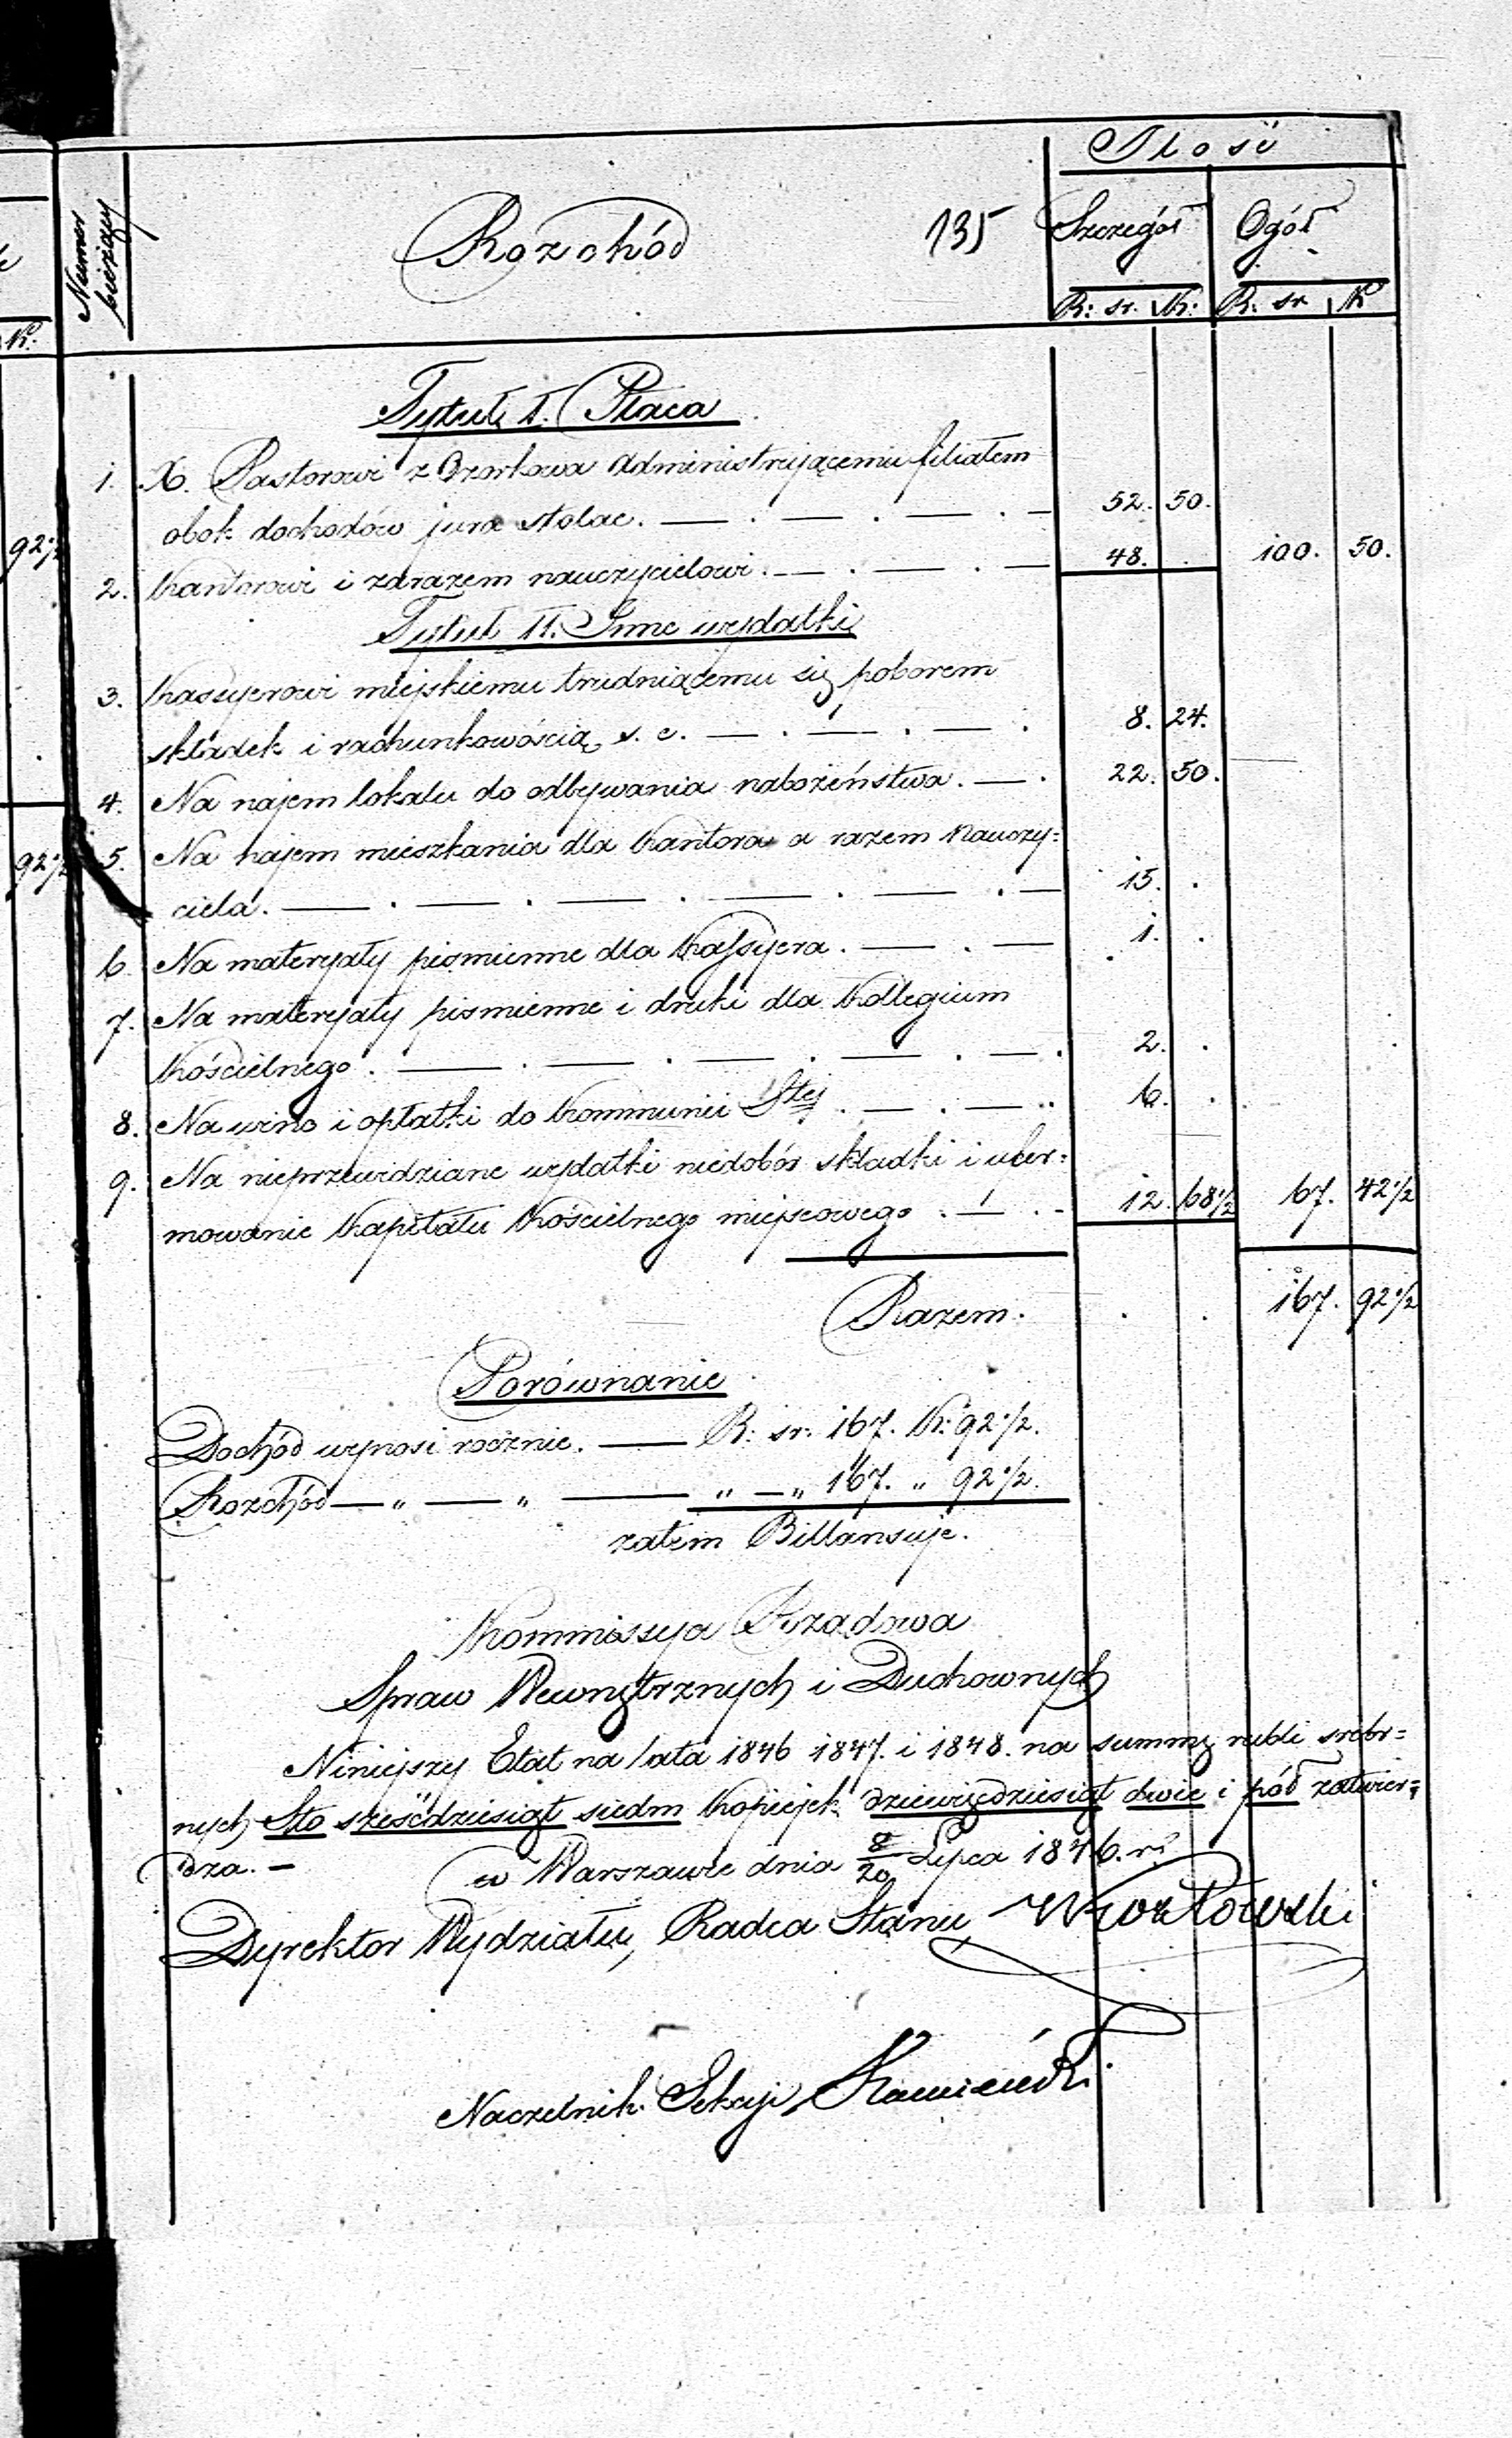 Ilość
Numer bieżący
Rozchód
135
Szczegół
Ogół
R: sr. K:
R. sr K
K:
Tytuł I. Płaca
1. X. Pastorowi z Ozorkowa administrującemu filiałem
obok dochodów jura stolae. 52. 50.
2. Kantorowi i zarazem nauczycielowi. 48. . 100. 50.
92½
Tytuł II. Inne wydatki
3. Kassyerowi miejskiemu trudniącemu się poborem
składek i rachunkowością s. c. 8. 24.
4. Na najem lokalu do odbywania nabożeństwa. 22. 50.
92½
5. Na najem mieszkania dla Kantora a razem Nauczy=
ciela. 15. .
6. Na materyały pismienne dla Kassyera. 1. .
7. Na materyały pismienne i druki dla Kollegium
Kościelnego. 2. .
8. Na wino i opłatki do Kommunii Stej. 6. .
9. Na nieprzewidziane wydatki niedobór składki i ufor=
mowanie Kapitału Kościelnego miejscowego. 12. 68½ 67. 42½
Razem. . . 167. 92½
Porównanie
Dochód wynosi rocznie. — R: sr: 167. K: 92½.
Rozchód — „ — „ — „ — „ 167. „ 92½.
zatem Billansuje.
Kommissya Rządowa
Spraw Wewnętrznych i Duchownych
Niniejszy Etat na lata 1846 1847. i 1848. na summę rubli srebr=
nych Sto sześćdziesiąt siedm kopiejek dziewięćdziesiąt dwie i pół zatwier=
dza. — w Warszawie dnia 8/20 Lipca 1846. r.
Dyrektor Wydziału, Radca Stanu,
Naczelnik Sekcji, Kamieński